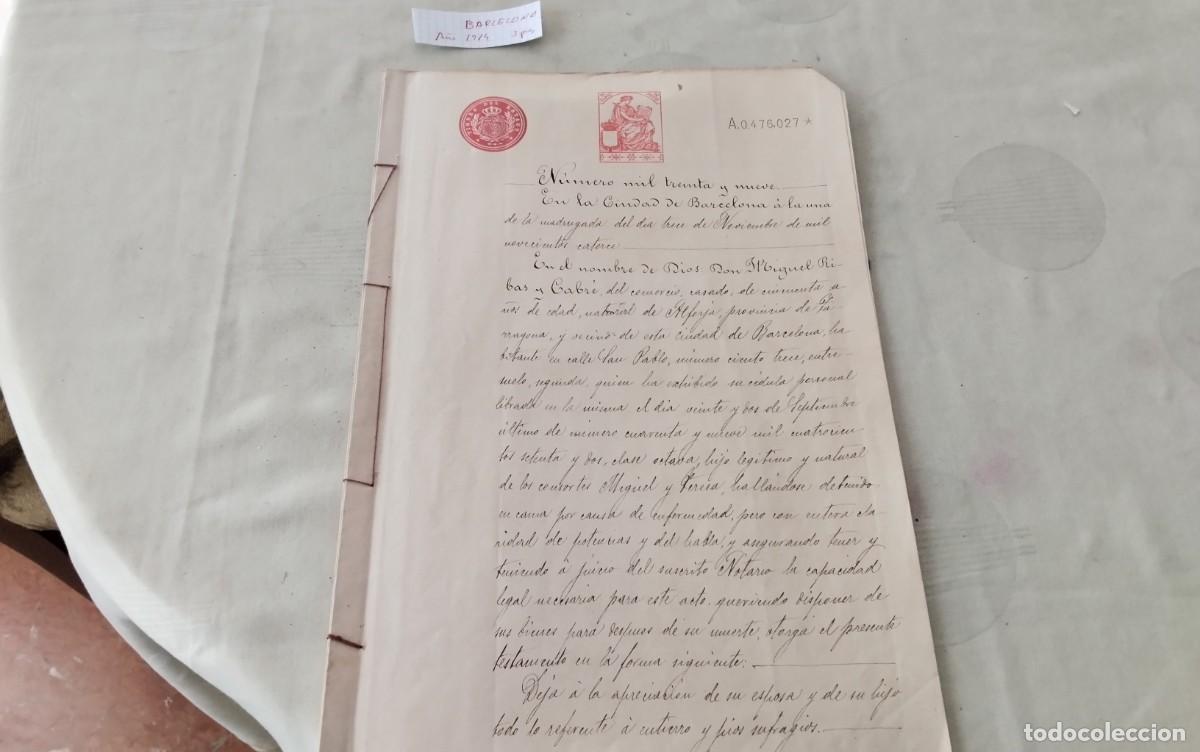 BARCELONA
Año 1914
TIMBRE DEL ESTADO
A.0.476.027 *
Número mil treinta y nueve.
En la Ciudad de Barcelona á la una
de la madrugada del dia trece de Noviembre de mil
novecientos catorce
En el nombre de Dios: Don Miguel Ri-
bas y Cabré, del comercio, casado, de cincuenta a-
ños de edad, natural de Alforja, provincia de Ta-
rragona, y vecino de esta ciudad de Barcelona, ha-
bitante en calle San Pablo, número ciento trece, entre-
suelo, segunda, quien ha exhibido su cédula personal
librada en la misma el dia veinte y dos de Septiembre
último de número cuarenta y nueve mil cuatrocien-
tos setenta y dos, clase octava, hijo legítimo y natural
de los consortes Miguel y Teresa, hallándose detenido
en cama por causa de enfermedad, pero con entera cla-
ridad de potencias y del habla, y asegurando tener y
teniendo á juicio del suscrito Notario la capacidad
legal necesaria para este acto, queriendo disponer de
sus bienes para despues de su muerte, otorga el presente
testamento en la forma siguiente:
Deja á la apreciación de su esposa y de su hijo
todo lo referente á entierro y pios sufragios.
todocoleccion